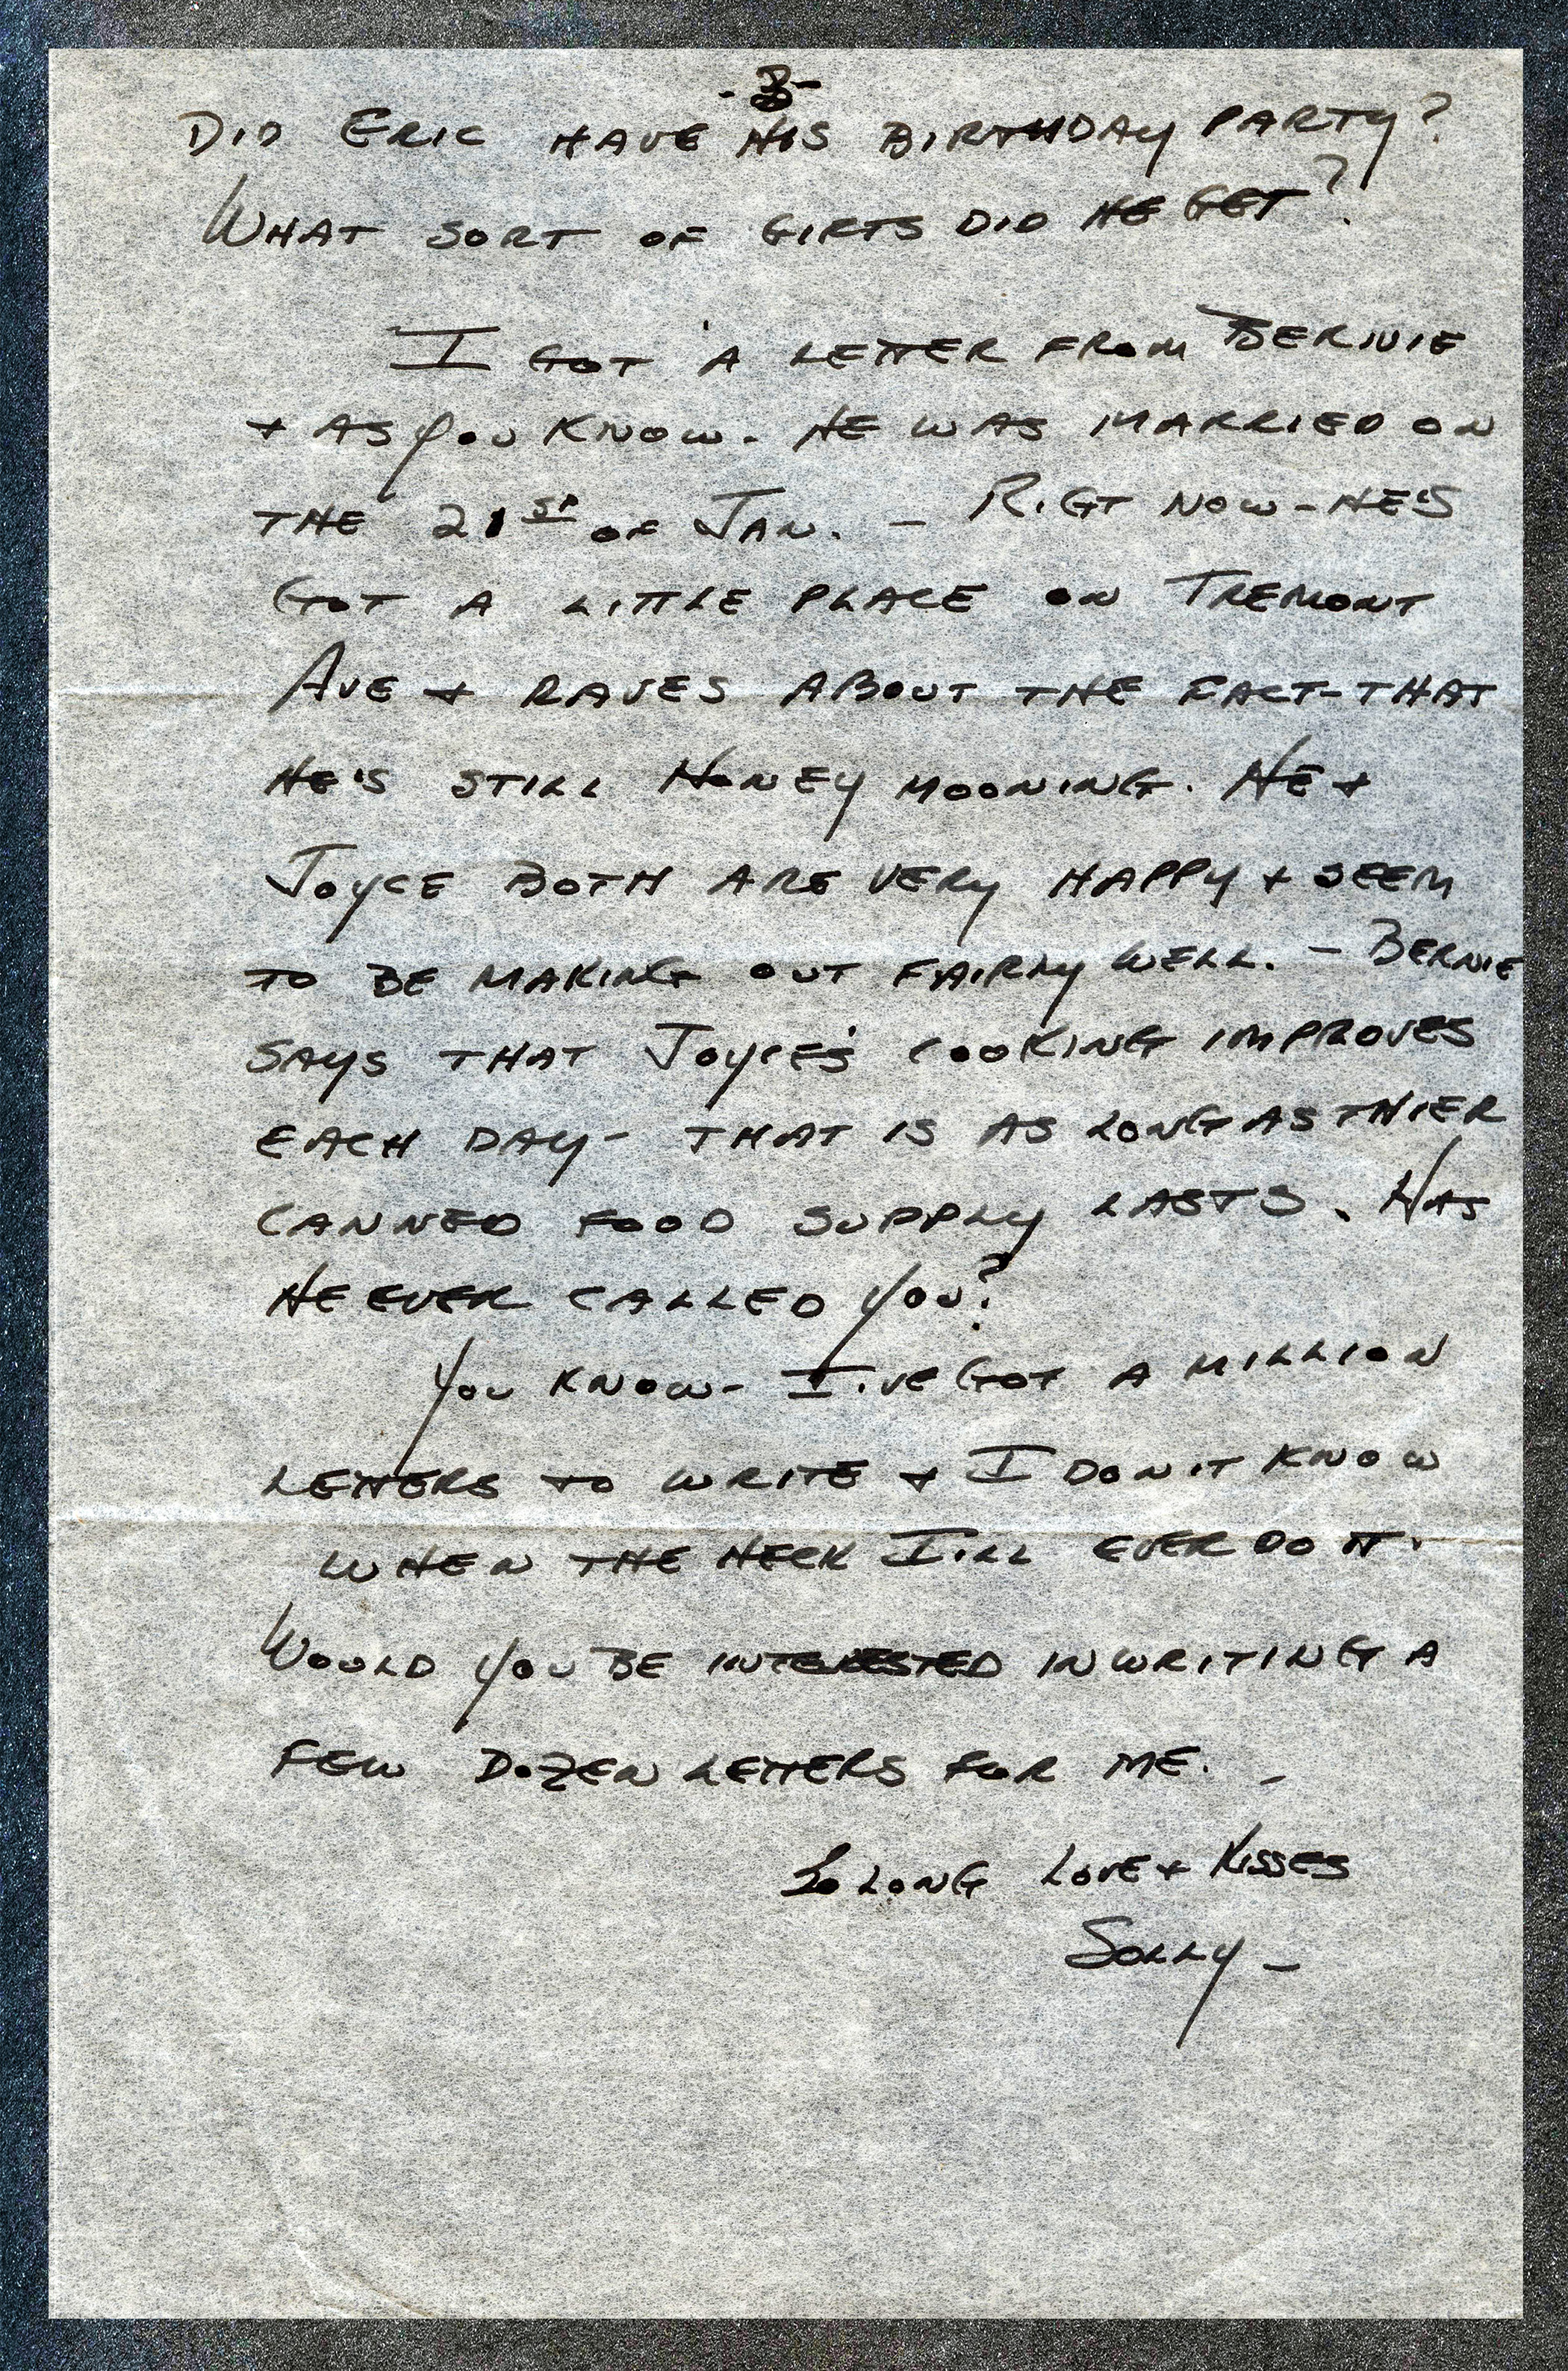 -3-
DID ERIC HAVE HIS BIRTHDAY PARTY?
WHAT SORT OF GIFTS DID HE GET?
I GOT A LETTER FROM BERNIE
+ AS YOU KNOW - HE WAS MARRIED ON
THE 21ST OF JAN. - RIGT NOW - HE'S
GOT A LITTLE PLACE ON TREMONT
AVE + RAVES ABOUT THE FACT - THAT
HE'S STILL HONEY MOONING. HE +
JOYCE BOTH ARE VERY HAPPY + SEEM
TO BE MAKING OUT FAIRLY WELL. - BERNIE
SAYS THAT JOYCE'S COOKING IMPROVES
EACH DAY - THAT IS AS LONG AS THIER
CANNED FOOD SUPPLY LASTS. HAS
HE EVER CALLED YOU?
YOU KNOW - I'VE GOT A MILLION
LETTERS TO WRITE + I DON'T KNOW
WHEN THE HECK I'LL EVER DO IT.
WOULD YOU BE INTERESTED IN WRITING A
FEW DOZEN LETTERS FOR ME. -
SO LONG LOVE + KISSES
SOLLY -